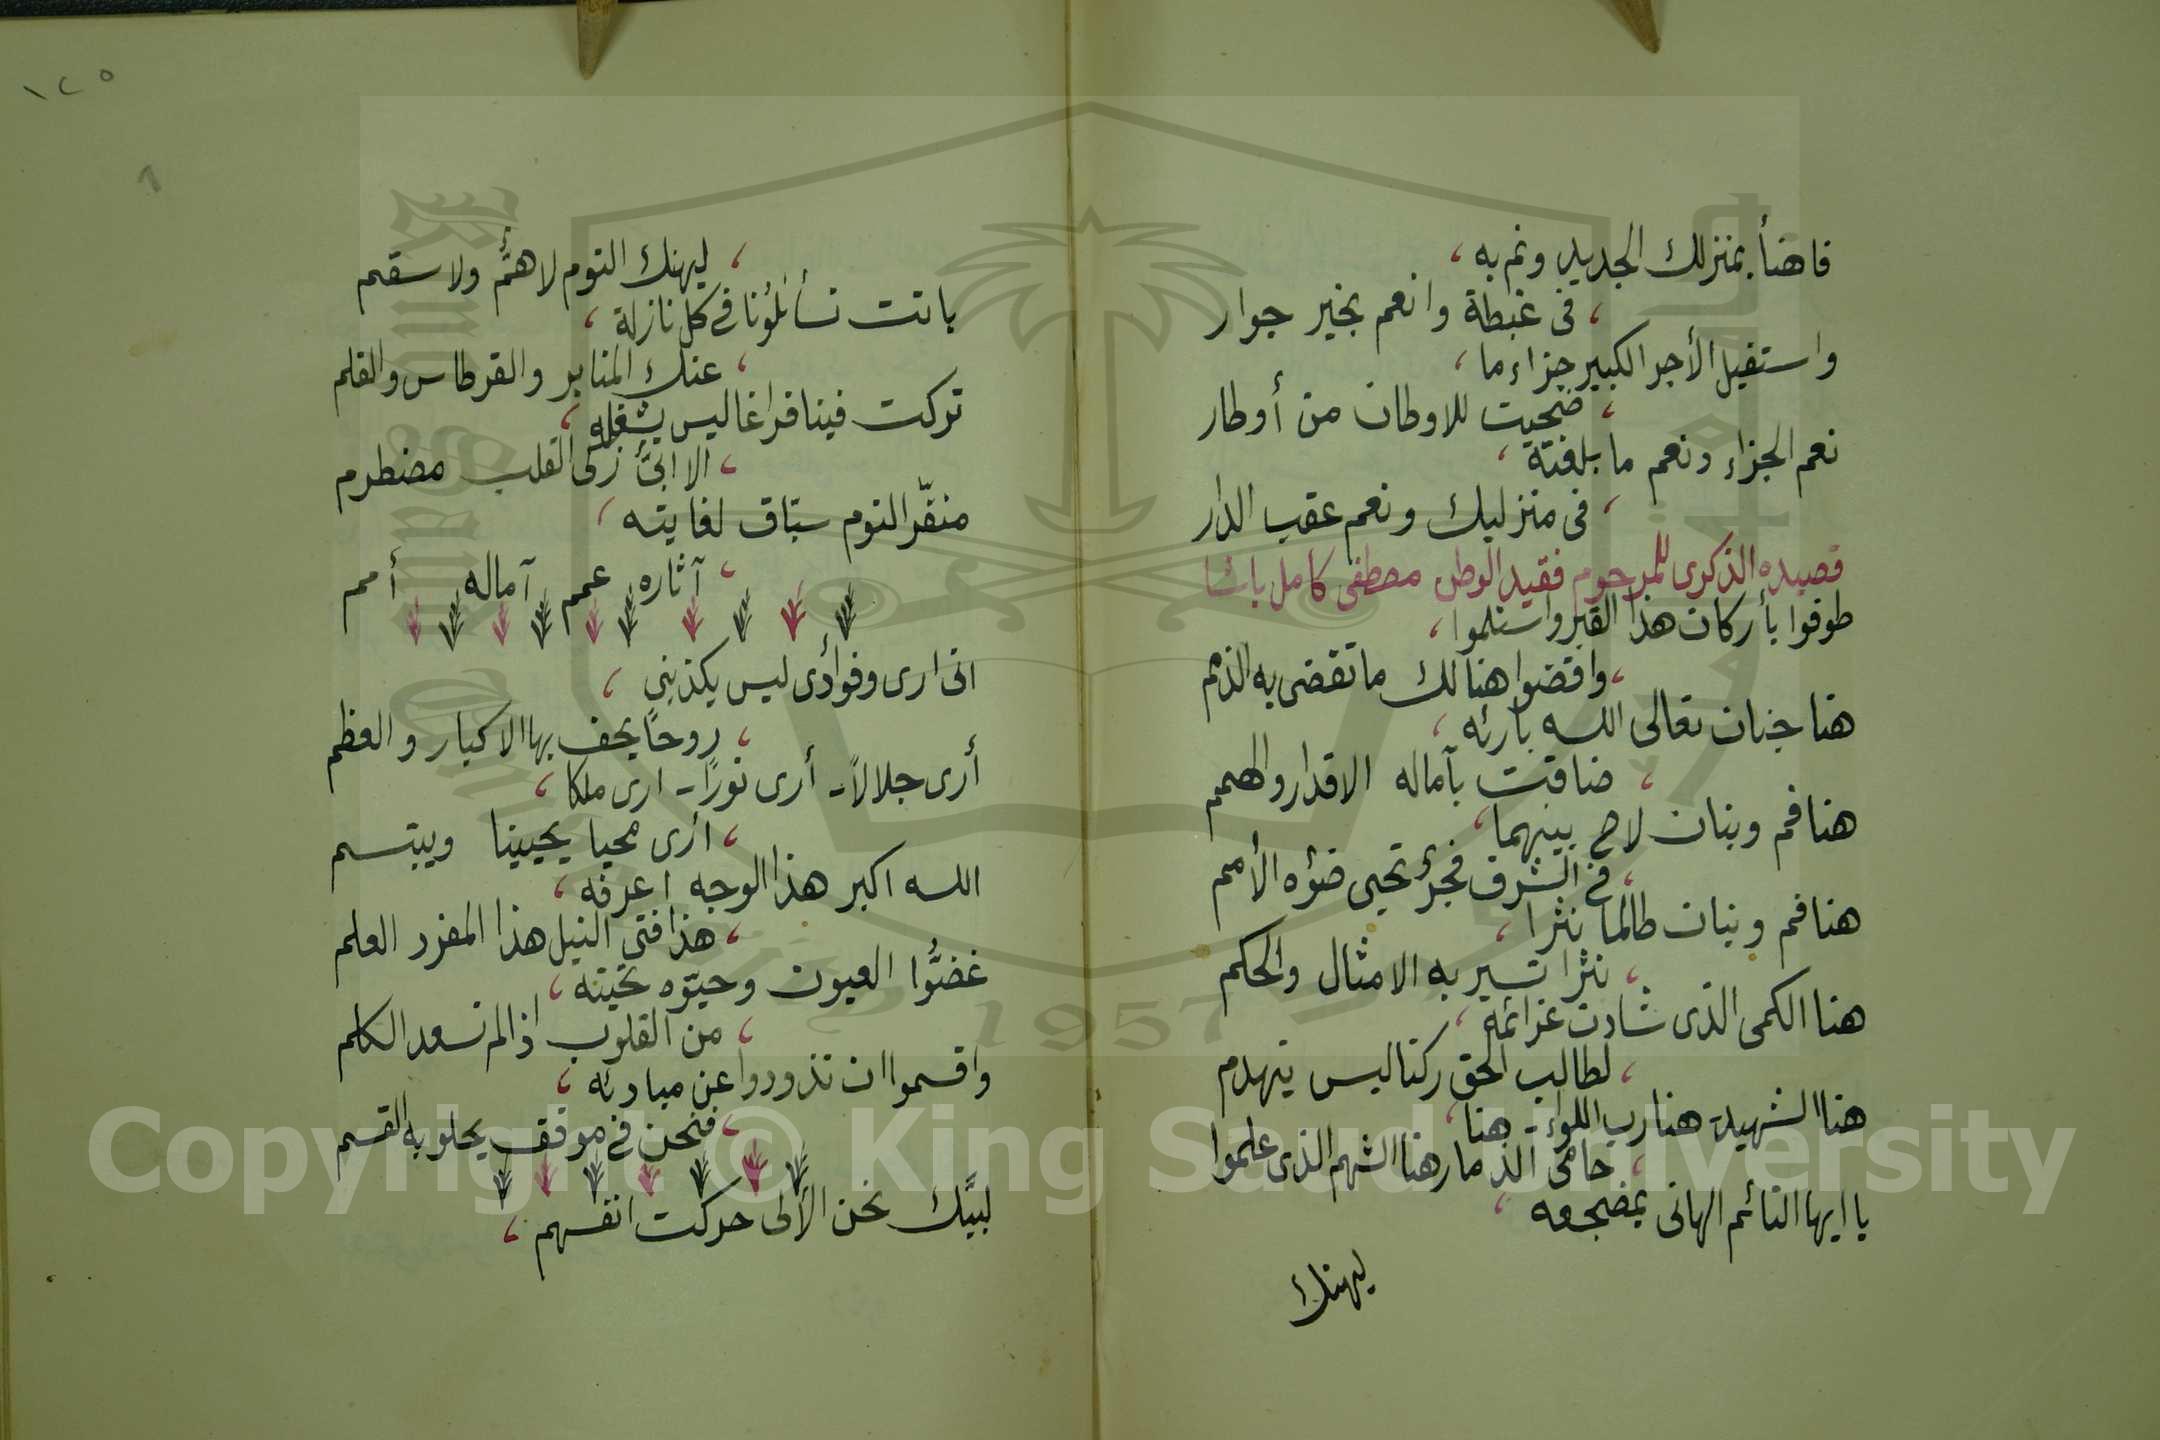 فاهنأ بمنزلك الجديد ونم به ،
، فى غبطة وانعم بخير جوار
واستقبل الأجر الكبير جزاء ما ،
، ضحيت للاوطان من أوطار
نعم الجزاء ونعم ما بلغته ،
، فى منزليك ونعم عقب الدار
قصيده الذكرى للمرحوم فقيد الوطن مصطفى كامل باشا
طوفوا بأركان هذا القبر واستلموا ،
، واقضوا هنالك ما تقضى به الذمم
هنا جنان تعالى الله بارئه ،
، ضاقت بآماله الاقدار والهمم
هنا فم وبنان لاح بينهما ،
، فى الشرق فجرٌ تحيى ضوءه الأمم
هنا فم وبنان طالما نثرا ،
، نثرا تسير به الامثال والحكم
هنا الكمى الذى شادت عزائمه ،
، لطالب الحق ركنا ليس ينهدم
هنا الشهيد- هنا رب اللواء- هنا ،
، حامى الذمار هنا الشهم الذى علموا
يا ايها النائم الهانى بمضجعه ،
ليهنك
١٢٥
، ليهنك النوم لا همٌّ ولا سقم
باتت تسائلُونا فى كل نازلة ،
، عنك المنابر والقرطاس والقلم
تركت فينا فراغا ليس يشغله ،
، الا ابىٌّ زكى القلب مضطرم
منفّر النوم سبّاق لغايته ،
، آثاره عمم آماله أمم
انى ارى وفوأدى ليس يكذبنى ،
، روحًا يحف بها الاكبار والعظم
أرى جلالاً- أرى نورًا- ارى ملكا ،
، أرى محيا يحيينا ويبتسم
الله اكبر هذا الوجه اعرفه ،
، هذا فتى النيل هذا المفرد العلم
غضُّوا العيون وحيّوه تحيته ،
، من القلوب اذا لم تسعد الكلم
واقسموا ان تذودوا عن مبادئه ،
، فنحن فى موقف يحلو به القسم
لبيّك نحن الألى حركت انفسهم ،
Copyright © King Saud University
1957